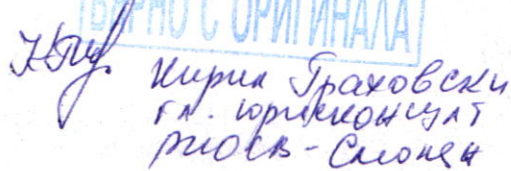 ВЯРНО С ОРИГИНАЛА
Кирил Граховски
гл. юрисконсулт
РИОСВ - Смолян